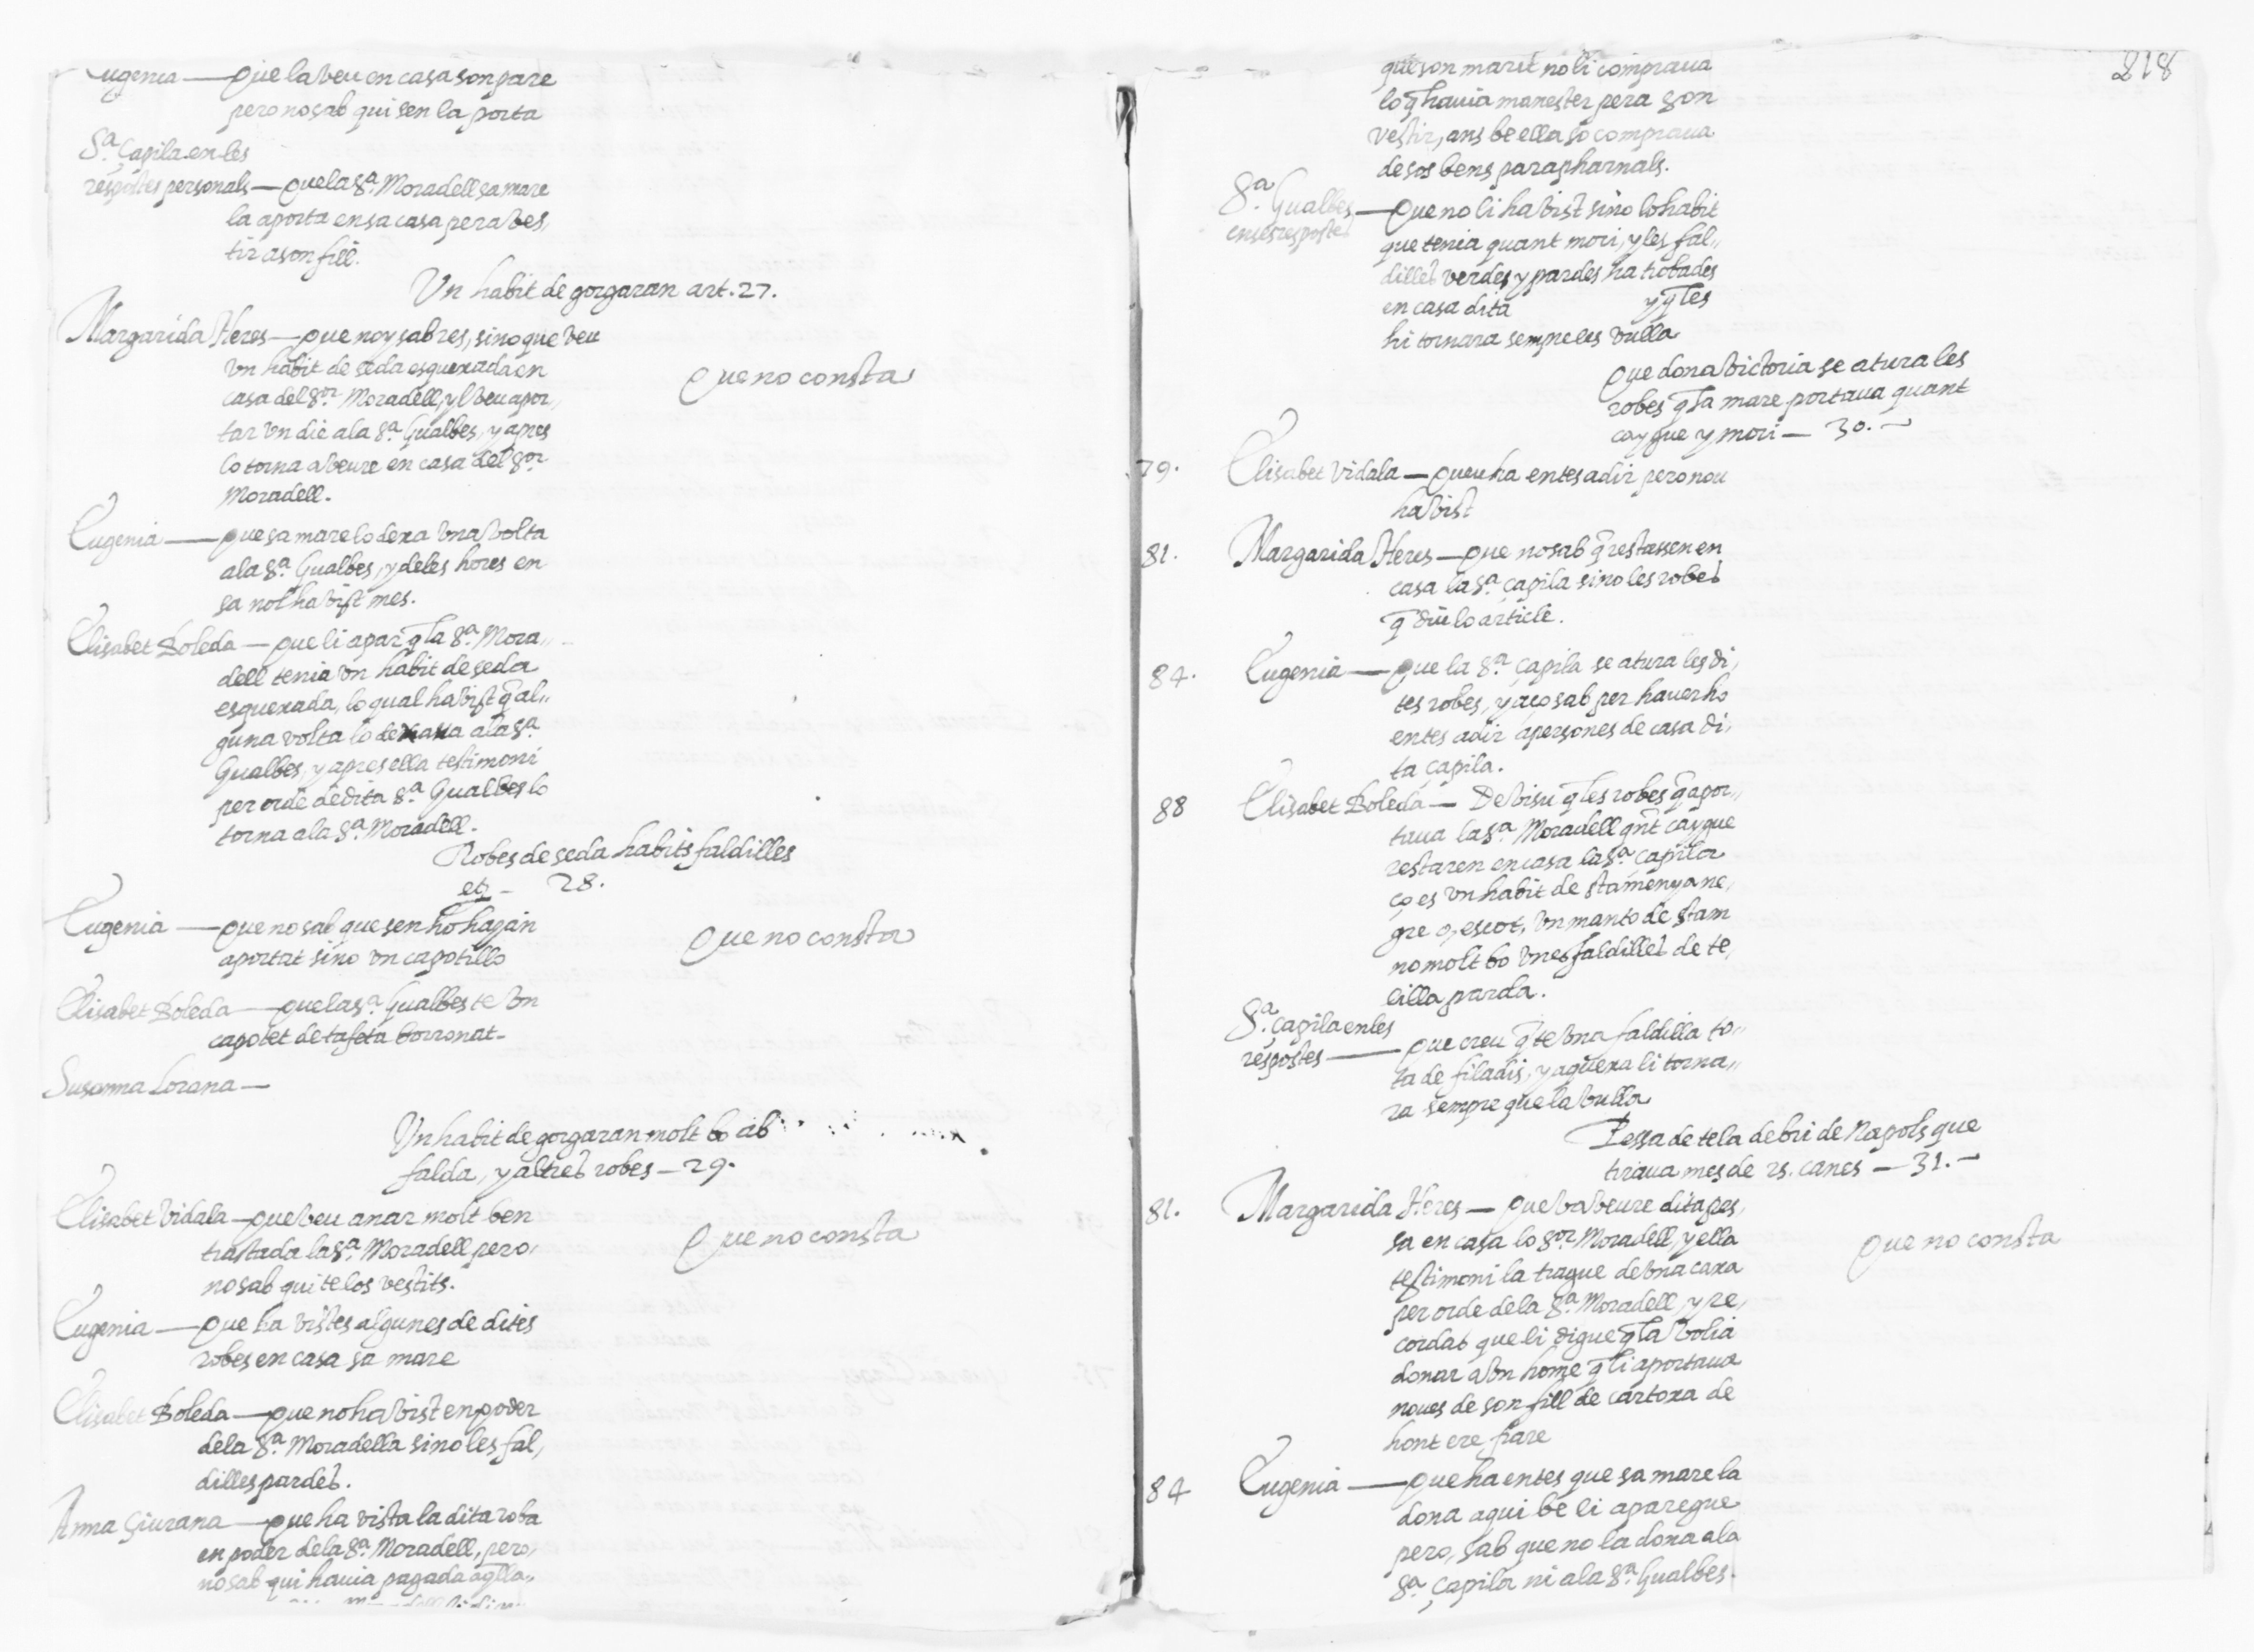 Eugenia — Que la veu en casa son pare
pero no sab qui sen la porta
Sª. Çapila en les
respostes personals — Que la Sª. Moradell sa mare
la aporta en sa casa pera ves,
tir a son fill.
Un habit de gorgaran art. 27.
Margarida Heres — Que noy sab res, sino que veu
un habit de seda esquexada en
casa del Sor. Moradell, yl veu apor,
tar un die a la Sª. Gualbes, y apres
lo torna a veure en casa del Sor.
Moradell.
Que no consta
Eugenia — Que sa mare lo dexa una volta
a la Sª. Gualbes, y de les hores en
sa nol ha vist mes.
Elisabet Boleda — Que li apar q̃ la Sª. Mora,,
dell tenia un habit de seda
esquexada, lo qual ha vist q̃ al,,
guna volta lo dexaua a la Sª.
Gualbes, y apres ella testimoni
per orde de dita Sª. Gualbes lo
torna a la Sª. Moradell.
Robes de seda habits faldilles
etz — 28.
Eugenia — Que no sab que sen ho hajan
aportat sino un capotillo
Que no consta
Elisabet Boleda — Que la Sª. Gualbes te un
capotet de tafeta borronat
Susanna Lorana —
Un habit de gorgaran molt bo ab
falda, y altres robes — 29.
Elisabet Vidala — Que veu anar molt ben
tractada la Sª. Moradell pero,
no sab qui te los vestits.
Que no consta
Eugenia — Que ha vistes algunes de dites
robes en casa sa mare
Elisabet Boleda — Que no ha vist en poder
de la Sª. Moradella sino les fal,
dilles pardes.
Anna Çiurana — Que ha vista la dita roba
en poder de la Sª. Moradell, pero,
no sab qui hauia pagada aq̃lla,,
218
que son marit no li compraua
lo q̃ hauia manester pera son
vestir, ans be ella so compraua
de sos bens parapharnals.
Sª. Gualbes
en ses respostes — Que no li ha vist sino lo habit
que tenia quant mori, y les fal,,
dilles verdes y pardes ha trobades
en casa dita y q̃ les
hi tornara sempre les vulla
Que dona Victoria se atura les
robes q̃ la mare portaua quant
caygue y mori — 30. —
79. Elisabet Vidala — Que u ha entes a dir pero nou
ha vist
81. Margarida Heres — Que no sab q̃ restassen en
casa la Sª. Çapila sino les robes
q̃ diu lo article.
84. Eugenia — Que la Sª. Çapila se atura les di,
tes robes, y aço sab per hauer ho
entes a dir a persones de casa di,
ta Çapila.
88 Elisabet Boleda — De visu q̃ les robes q̃ apor,,
taua la Sª. Moradell qñt caygue
restaren en casa la Sª. Çapila
ço es un habit de stamenya ne,
gre o, escot, un manto de stam
no molt bo unes faldilles de te,
lilla parda.
Sª. Çapila en les
respostes — Que creu q̃ te una faldilla to,,
ta de filadis, y aquexa li torna,,
ra sempre que la vulla
Pessa de tela de bri de Napols que
tiraua mes de 25. canes — 31. —
81. Margarida Heres — Que va veure dita pes,
sa en casa lo Sor. Moradell, y ella
testimoni la trague de una caxa
per orde de la Sª. Moradell, y re,
cordas que li digue q̃ la volia
donar a un home q̃ li aportaua
noues de son fill de cartoxa de
hont ere frare
Que no consta
84 Eugenia — Que ha entes que sa mare la
dona a qui be li aparegue
pero, sab que no la dona a la
Sª. Çapila ni a la Sª. Gualbes.